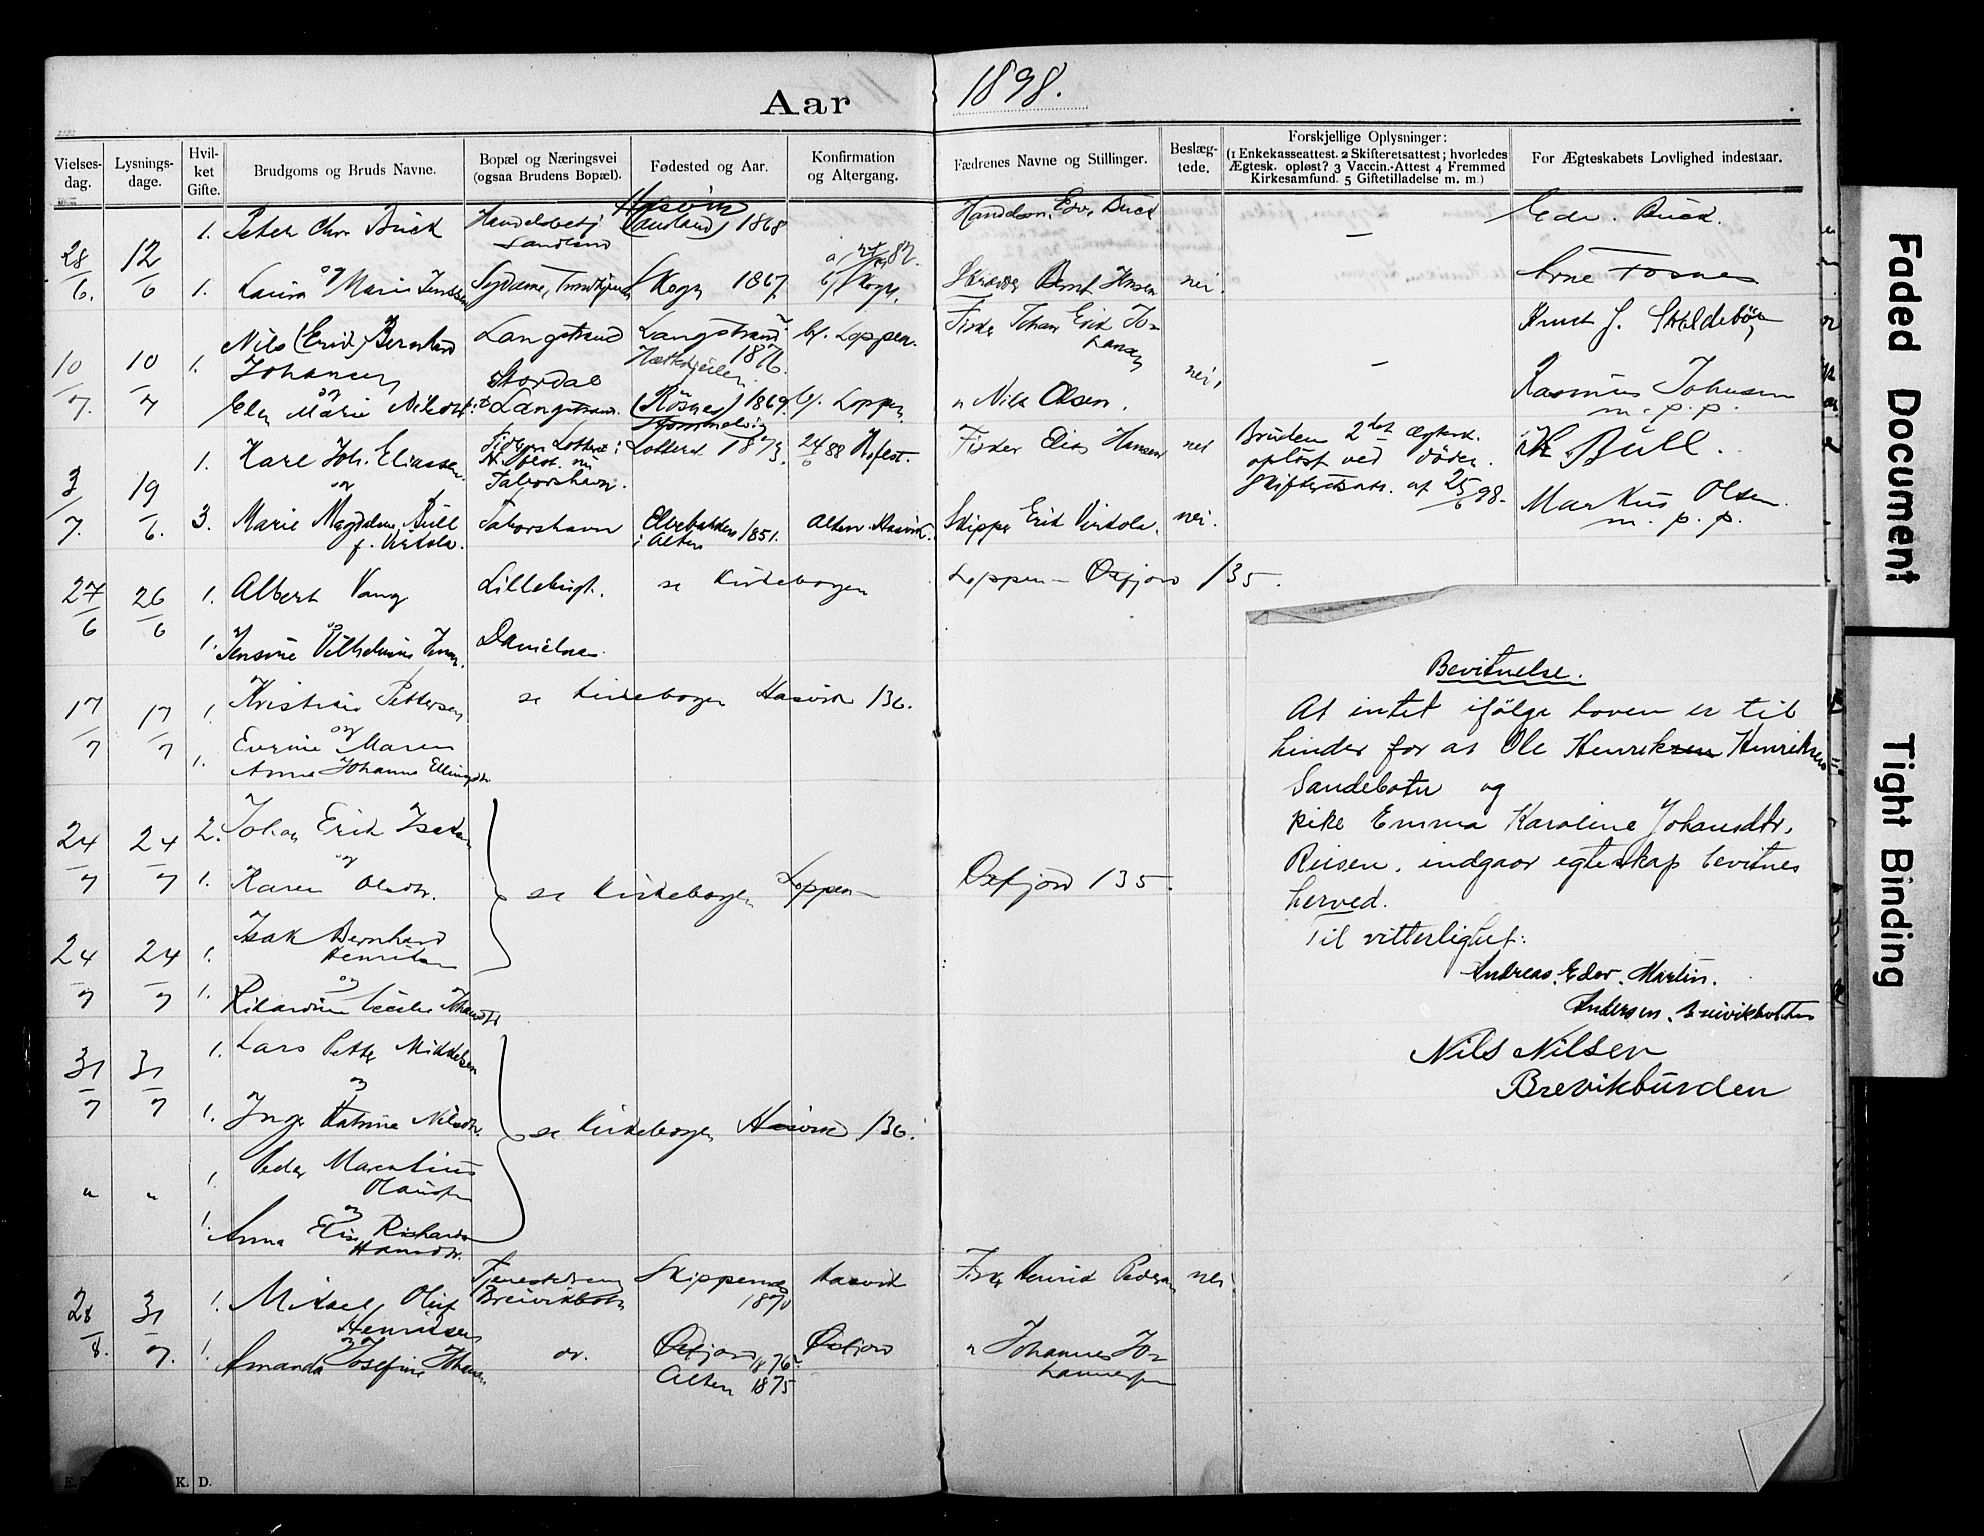 Aar 1898.
Vielses-
dag.
Lysnings-
dage.
Hvil-
ket
Gifte.
Brudgoms og Bruds Navne.
Bopæl og Næringsvei
(ogsaa Brudens Bopæl).
Fødested og Aar.
Konfirmation
og Altergang.
Fædrenes Navne og Stillinger.
Beslæg-
tede.
Forskjellige Oplysninger:
(1 Enkekasseattest. 2 Skifteretsattest; hvorledes
Ægtesk. opløst? 3 Vaccin.-Attest 4 Fremmed
Kirkesamfund. 5 Giftetilladelse m. m.)
For Ægteskabets Lovlighed indestaar.
28/6. 12/6
1. Peter Chr. Buck
Sandland
Hasvik
(Sandland) 1868
Edv. Buck
—
Edv. Buck.
og
1. Laura Marie Jenssen
Skogn 1867
b/ Skogn.
nei.
Arne Fosnes
10/7. 10/7
1. Nils (Erik) Bernhard
Johansen
Langstrand
Langstrand
1876.
b/. Loppen.
Fisker Johan Erik Jo-
hansen
nei,
—
Knut J.
og
Elen Marie Nilsdtr.
Stordal
Langstrand.
(Rösnes) 1869
b/. Loppen
" Nils Olsen.
Rasmus Johnsen
m. p. p.
3/7. 19/6.
1. Karl Joh. Eliassen
Taborshavn.
1873.
24/6 88
Fisker Elias Hansen
nei
Bruden 2det Ægtesk.
opløst ved døden.
Skifteretsatt. af 25/6 98.
Bull.
og
3. Marie Magdalene Bull
f. Virkola.
Taborshavn
Elvebakken
i Alten 1851.
Alten Hasvik.
Skipper Erik Virkola.
nei.
Markus Olsen.
m. p. p.
27/6 26/6
1. Albert Vang
Lillebugt.
se Kirkebogen
Loppen — Øxfjord 135.
og
1. Jensine Vilhelmine
Danielsen
17/7 17/7
1. Kristian Pettersen
se Kirkebogen Hasvik 136.
og
1. Evrine Maren
Anne Johanne Ellingsdtr
24/7 24/7
2. Johan Erik Isaksen
og
1. Karen Olsdtr.
se Kirkebogen Loppen — Øxfjord 135.
24/7 24/7
1. Isak Bernhard
Henriksen
og
1. Rikardine Cecilie Johansdtr
31/7 31/7
1. Lars Petter Mikkelsen
og
1. Inger Katrine Nilsdtr.
se Kirkebogen Hasvik 136.
" "
1. Peder Marentius
Olaussen
og
1. Anna Elise Rikharda
Hansdtr.
28/8. 31/7.
1. Mikael Oluf
Henriksen
Tjenestedreng
Breivikbotn
1870
Hasvik
Fisker Henrik Pedersen
nei.
og
1. Amanda Josefine Johansen
do.
Øxfjord 1876
Alten 1875
Øxfjord
" Johannes Jo-
hannessen
Bevitnelse.
At intet ifölge loven er til
hinder for at Ole Henriksen Henriksen
Sandebotn og
pike Emma Karoline Johansdtr.
Riisen, indgaar egteskap bevitnes
herved.
Til vitterlighet:
Andreas. Edv. Martin.
Andersen.
Nils Nilsen
Brevikburden
Faded Document
Tight Binding
K. D.